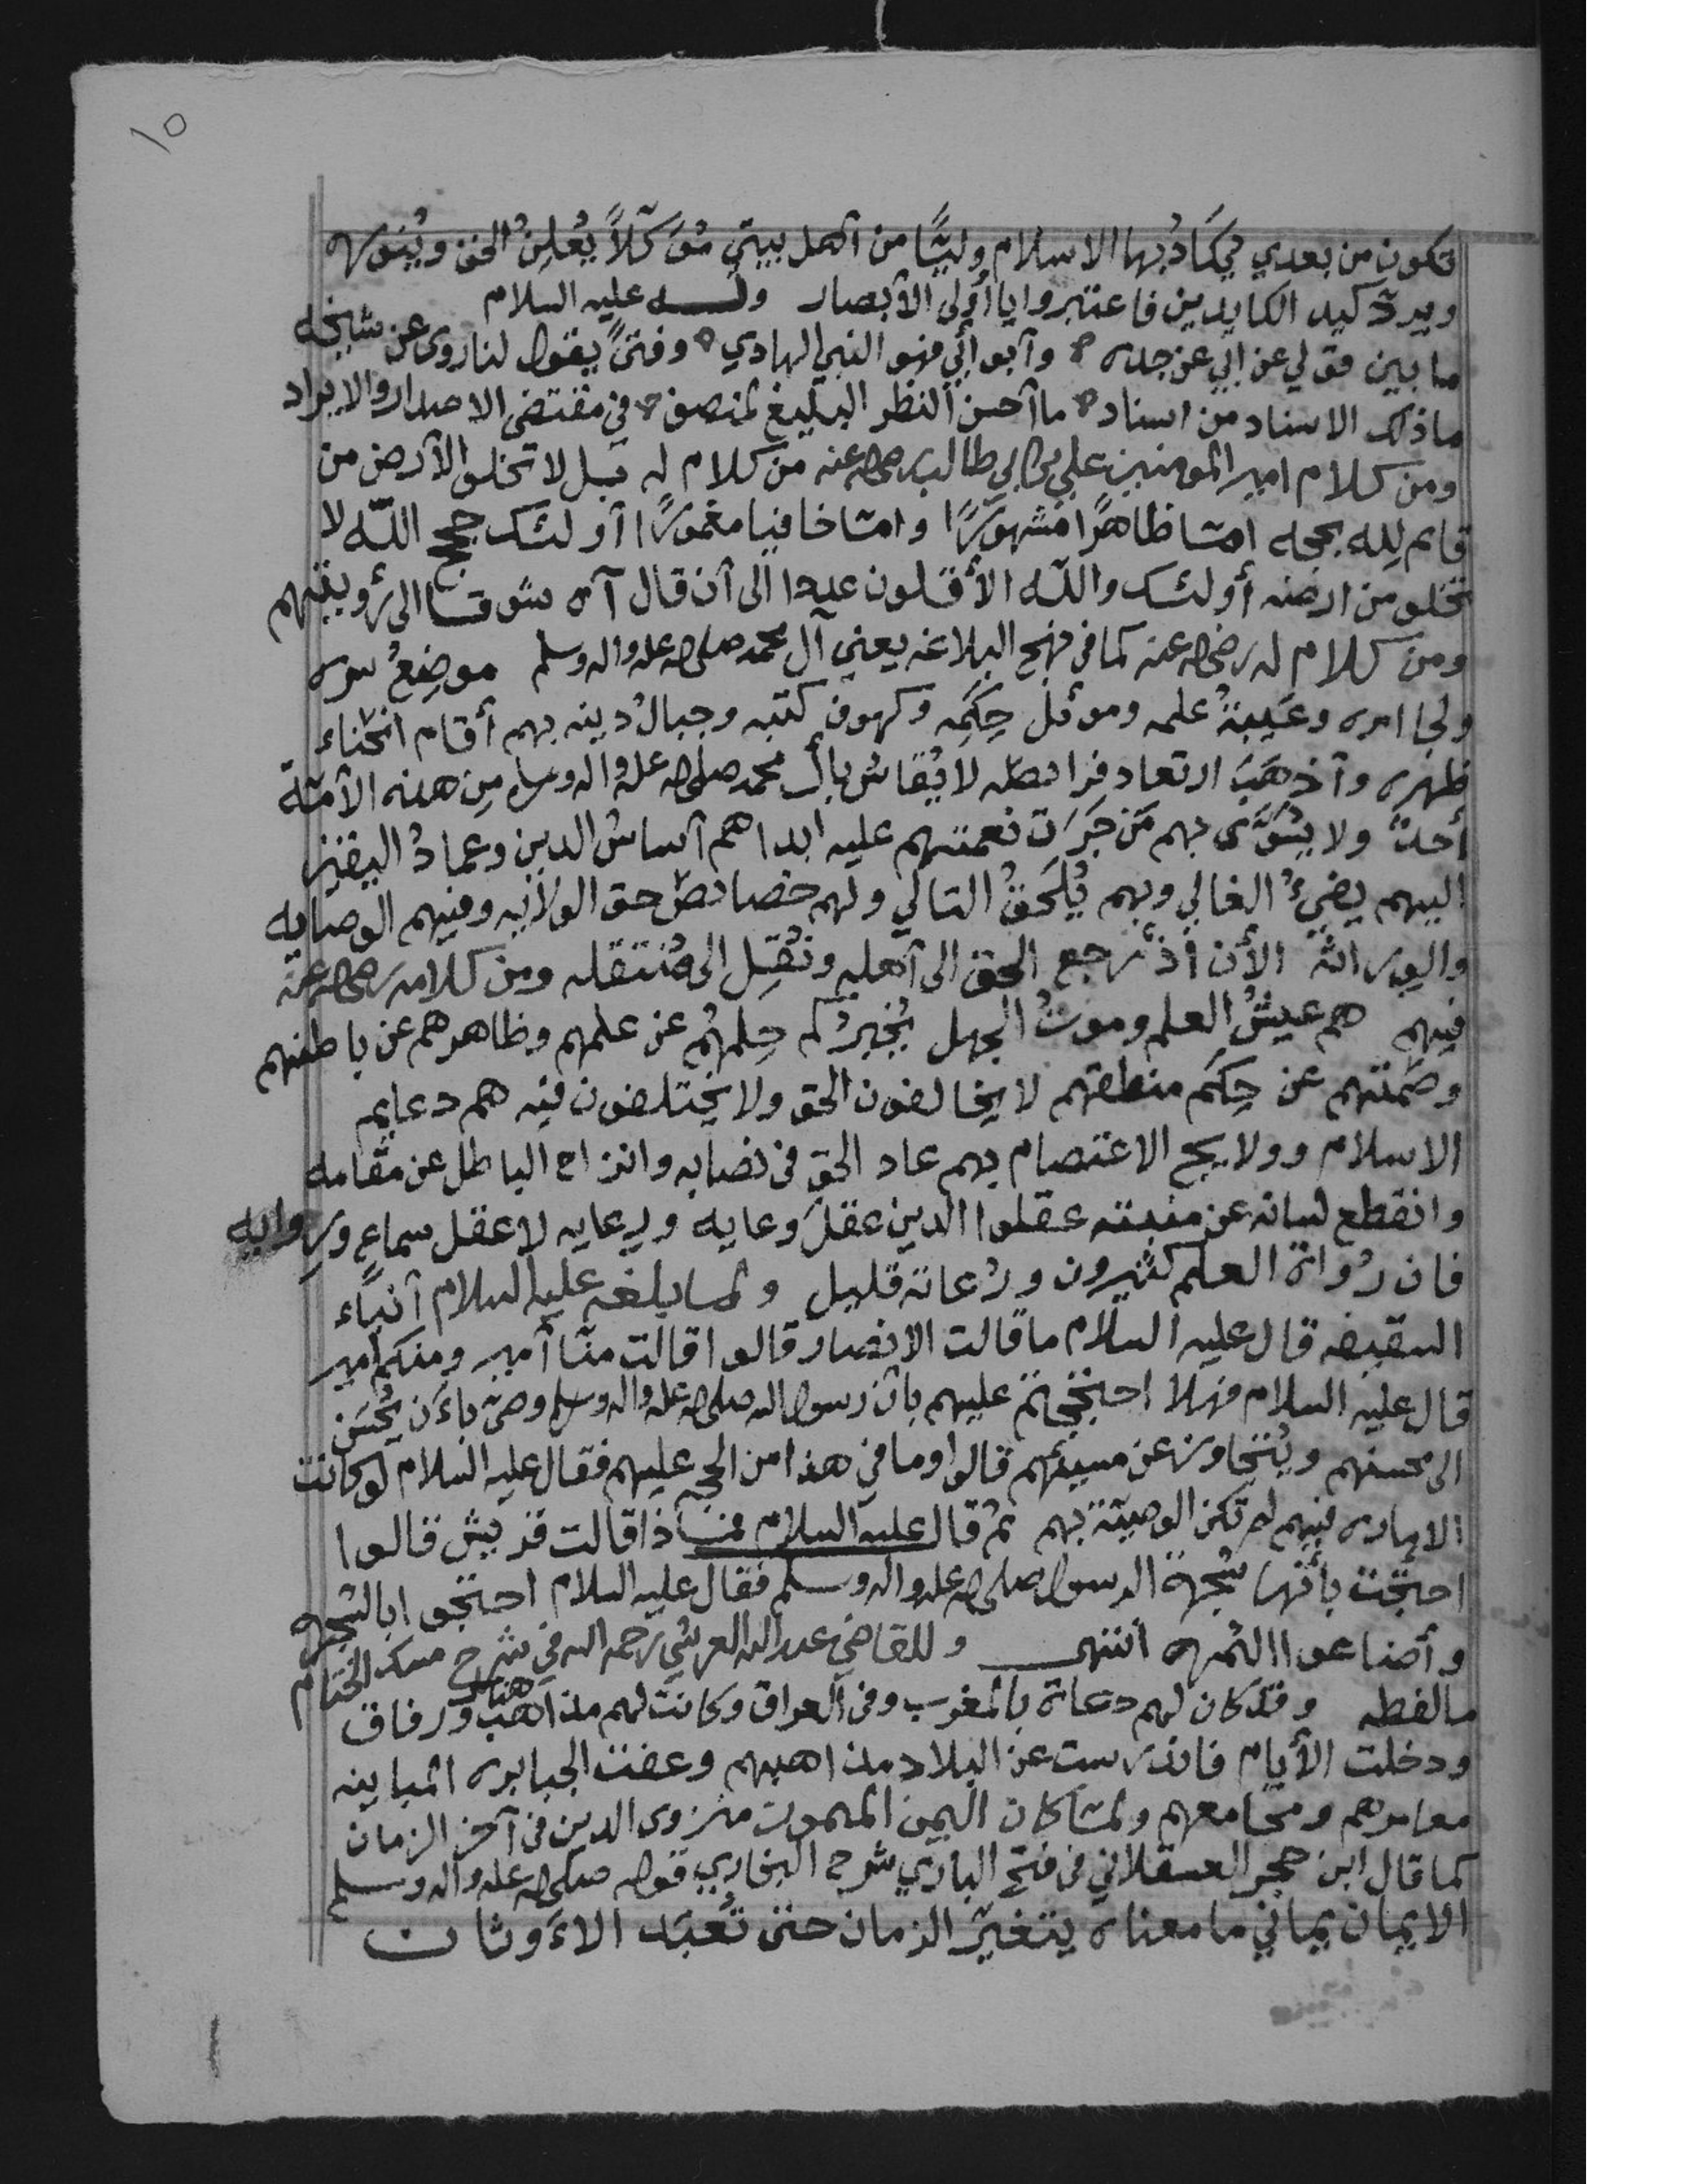 ١٥
تكون من بعدي يُكَادُ بها الاسلام وليًّا من آهل بيتي مُوَكّلاً يُعْلِنُ الحق ويُنَوره
ويردّ كيد الكايدين فاعتبروا يا أولى الأبصار وله عليه السلام
ما بين قولي عن ابي عن جده ۞ وآبو أبي فهو النبي الهادي ۞ وفتىً يقول لنا روى عن شيخه
ما ذلك الاسناد من اسناد ۞ ما آحسن النظر البليغ لمنصف ۞ في مقتضى الاصدار والايراد
ومن كلام امير المومنين علي بن ابي طالب رضي الله عنه من كلام له قبل لا تخلو الآرض من
قايم لِله بحجه امّا ظاهرًا مشهورًا وامّا خافيا مغمورًا آولئك حجج اللّه لا
تخلو من ارضه أولئك واللّه الأقلون عددا الى آن قال آه شوقا الى رؤيتهم
ومن كلام له رضي الله عنه كما في نهج البلاغه يعني آل محمد صلى الله عليه واله وسلم موضِعُ سره
ولجا امره وعَيبةُ علمه وموئل حِكَمِه وكهوف كتبه وجبالُ دينه بهم أقام انحناء
ظهره وآذهَبَ ارتعاد فرائصه لا يُقاسُ بآل محمد صلى الله عليه واله وسلم مِن هذه الآمّة
أحدٌ ولا يُسَوَّى بهم مَن جَرَت نعمتهم عليه ابدا هم آساسُ الدين وعمادُ اليقين
اليهم يفيءُ الغالي وبهم يُلحَقُ التالي ولهم خصائصُ حق الولايه وفيهم الوصايه
والوراثة الأن اذ رجع الحق الى آهله ونُقِل الى مُنتقله ومن كلامه رضي الله عنه
فيهم هم عيشُ العلم وموتُ الجهل يُخبِرُكم حِلمُهم عن علمهم وظاهرهم عن باطنهم
وصَمتهم عن حِكَم منطقهم لا يخالفون الحق ولا يختلفون فيه هم دعايم
الاسلام وولايج الاعتصام بهم عاد الحق في نصابه وانزاح الباطل عن مقامه
وانقطع لسانه عن منبته عقلوا الدين عقلَ وعايه ورعايه لا عقل سماعٍ ورِوايه
فان رُواة العلم كثيرون ورُعاته قليل ولما بلغه عليه السلام آنبآء
السقيفه قال عليه السلام ما قالت الانصار قالوا قالت منّا آمير ومنكم أمير
قال عليه السلام فهلا احتججتم عليهم بان رسول الله صلى الله عليه واله وسلم وصّى باءَن يُحسَن
الى محسنهم ويُتجاوز عن مسيئهم قالوا وما في هذا من الحجه عليهم فقال عليه السلام لو كانت
الاماره فيهم لم تكن الوصيّة بهم ثم قال عليه السلام فماذا قالت قريش قالوا
احتجّت بأنّها شجرة الرسول صلى الله عليه واله وسلم فقال عليه السلام احتجوا بالشجره
وأضاعوا الثمره انتهى وللقاضي عبد الله العرشي رحمه الله في شرح مسك الختام
ما لفظه وقد كان لهم دعاة بالمغرب وفي العراق وكانت لهم هنالك مذاهب ورفاق
ودخلت الأيام فاندرست عن البلاد مذاهبهم وعفت الجبابره المباينه
معامرهم ومجامعهم ولمّا كان اليمن الميمون منزوى الدين في آخر الزمان
كما قال ابن حجر العسقلاني في فتح الباري شرح البخاري قوله صلى الله عليه واله وسلم
الايمان يماني ما معناه يتغيّر الزمان حتى تُعبَد الاءَوثان